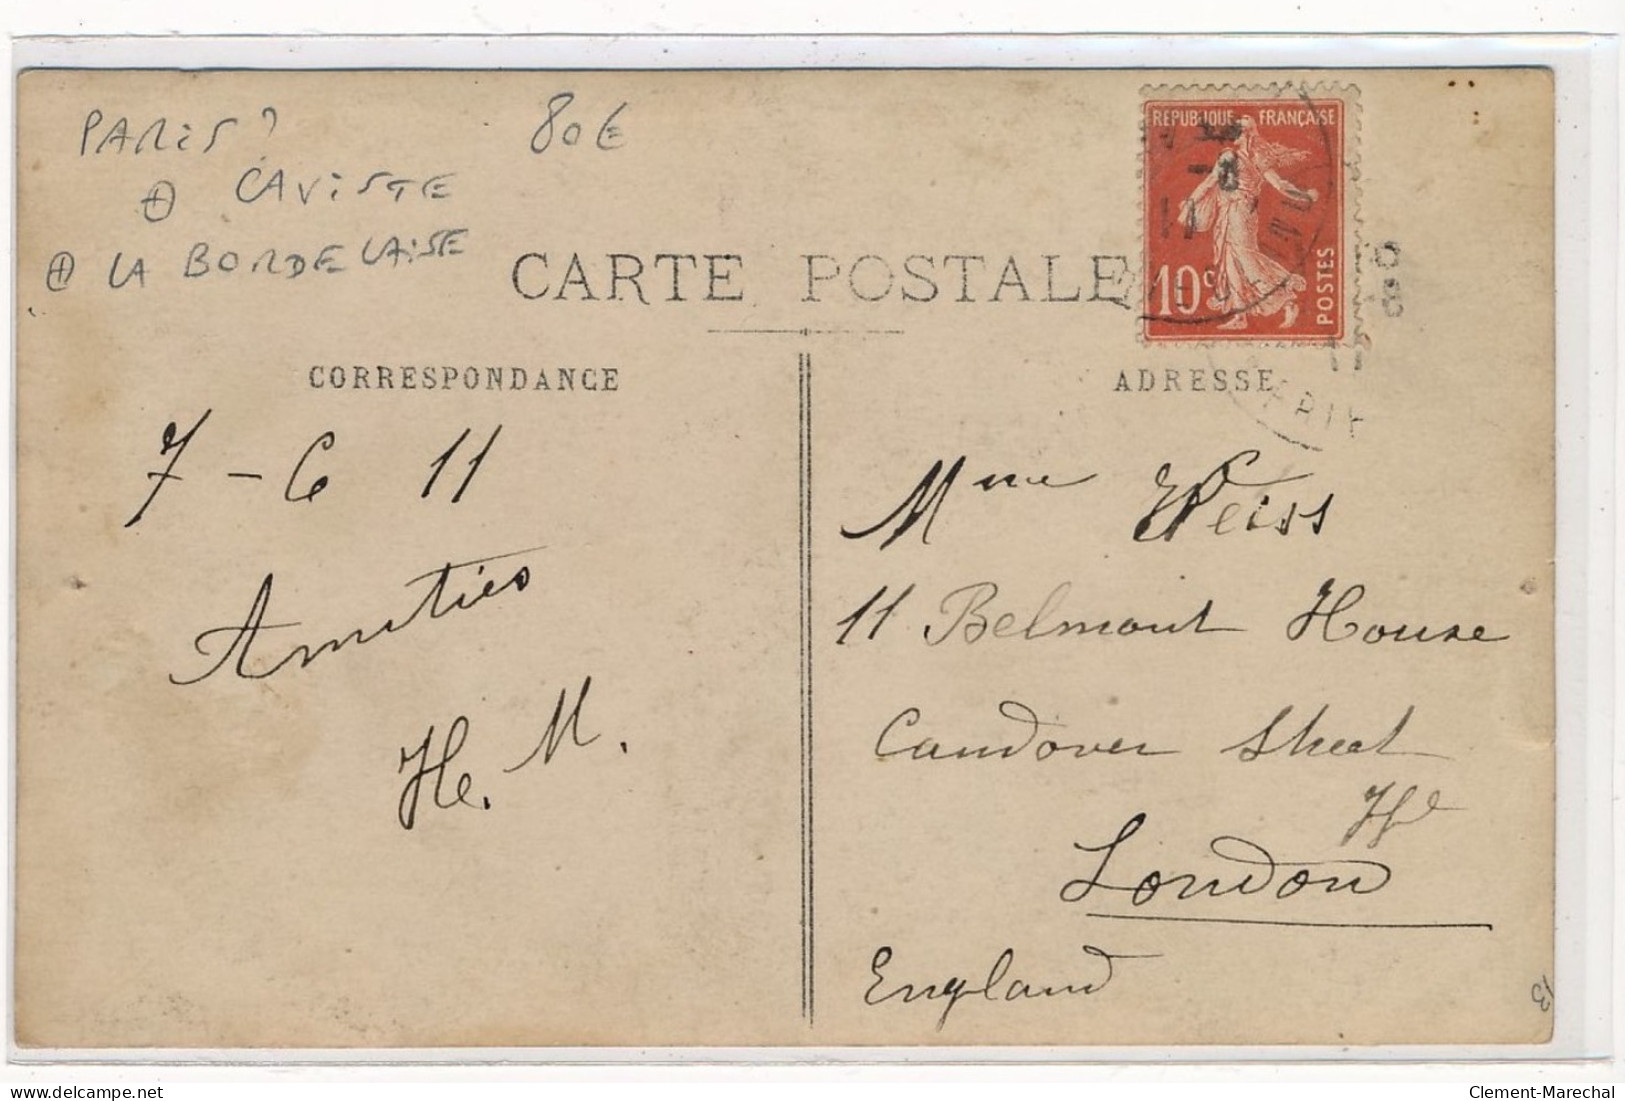 PARIS ?
80€
⊕ CAVISTE
⊕ LA BORDELAISE
CARTE POSTALE
REPUBLIQUE FRANÇAISE
10c
POSTES
CORRESPONDANCE
7 - 6 11
Amitiés
He. M.
ADRESSE
Mme Weiss
11 Belmont House
Candover Street
London
England
13
delcampe.net
Clement-Marechal